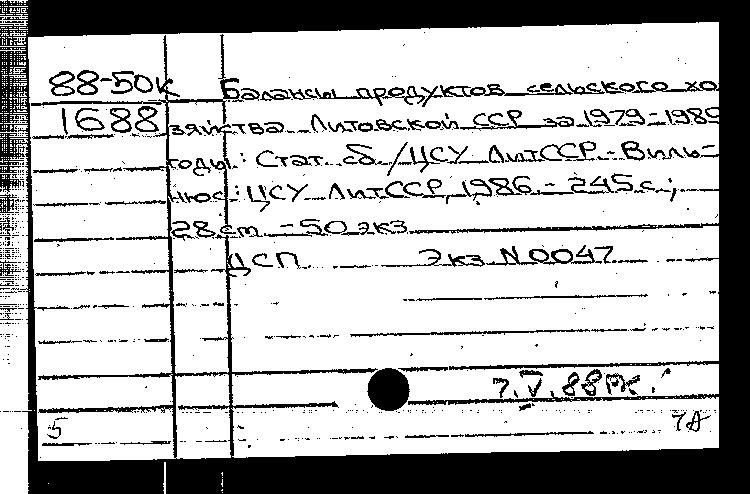 88-50К Балансы продуктов сельского хо
1688 зяйства Литовской ССР за 1979-198
годы: Стат. сб. /ЦСУ ЛитССР.- Виль-
нюс: ЦСУ ЛитССР, 1986.- 245 с.;
28 cm - 50 экз
ДСП Экз N 0047
7.V.88
5